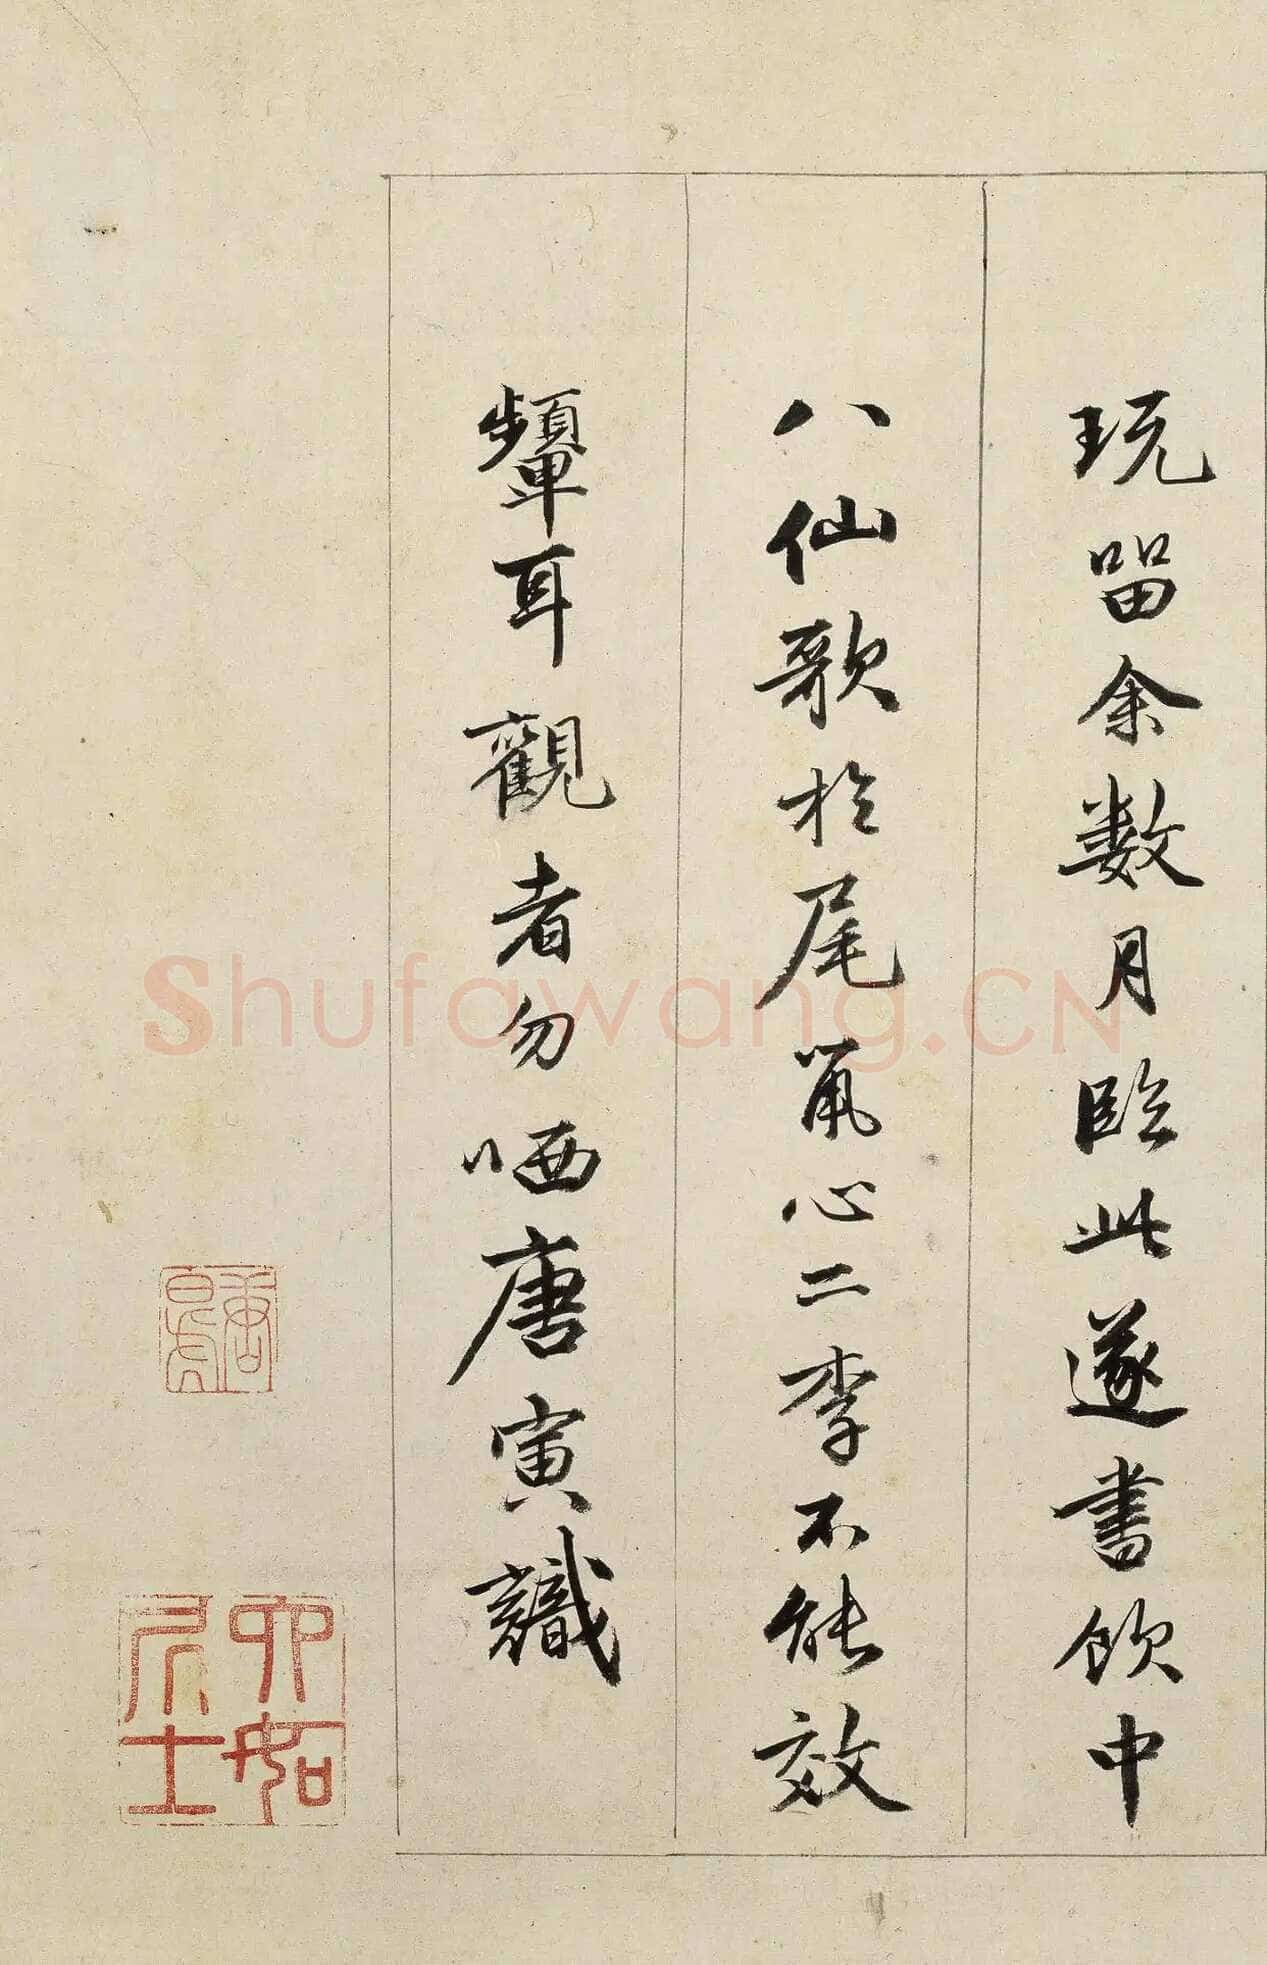 玩留余数月臨此遂書飲中
八仙歌於尾第心二李不能效
顰耳觀者勿哂唐寅識
唐伯虎
六如居士
Shufawang.CN